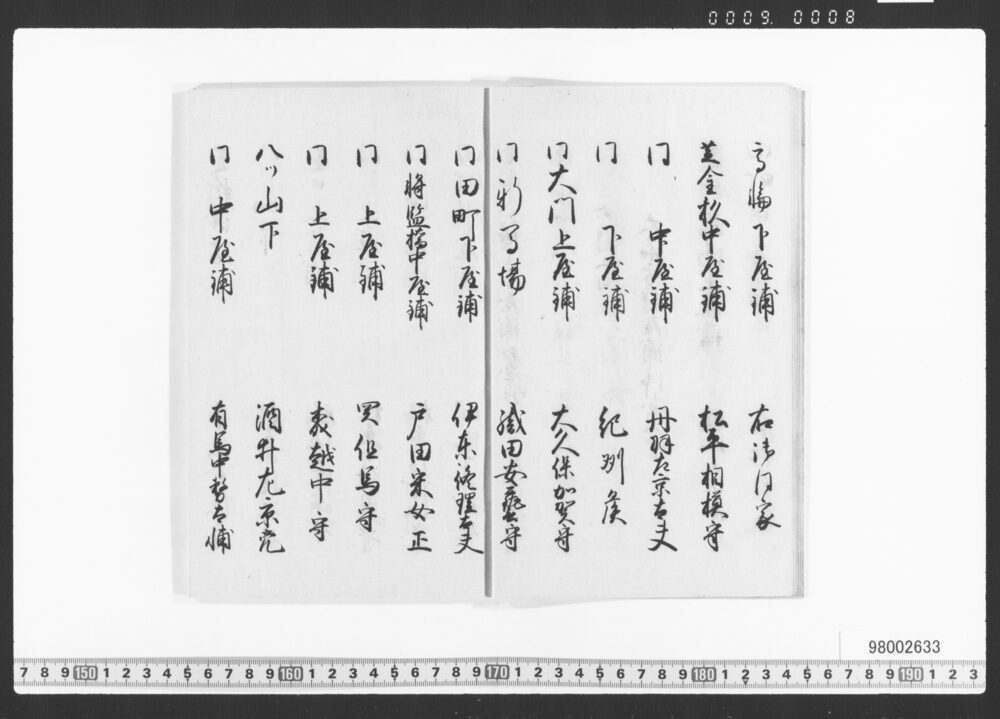 0009. 0008
高輪下屋鋪 右御同家
芝金杉中屋鋪 松平相模守
同 中屋鋪 丹羽左京大夫
同 下屋鋪 紀州侯
同大門上屋鋪 大久保加賀守
同新馬場 織田安藝守
同田町下屋鋪 伊東修理大夫
同将監橋中屋鋪 戸田采女正
同 上屋鋪 関但馬守
同 上屋鋪 森越中守
八ツ山下 酒井左京亮
同 中屋鋪 有馬中務大輔
98002633
7 8 9 150 1 2 3 4 5 6 7 8 9 160 1 2 3 4 5 6 7 8 9 170 1 2 3 4 5 6 7 8 9 180 1 2 3 4 5 6 7 8 9 190 1 2 3